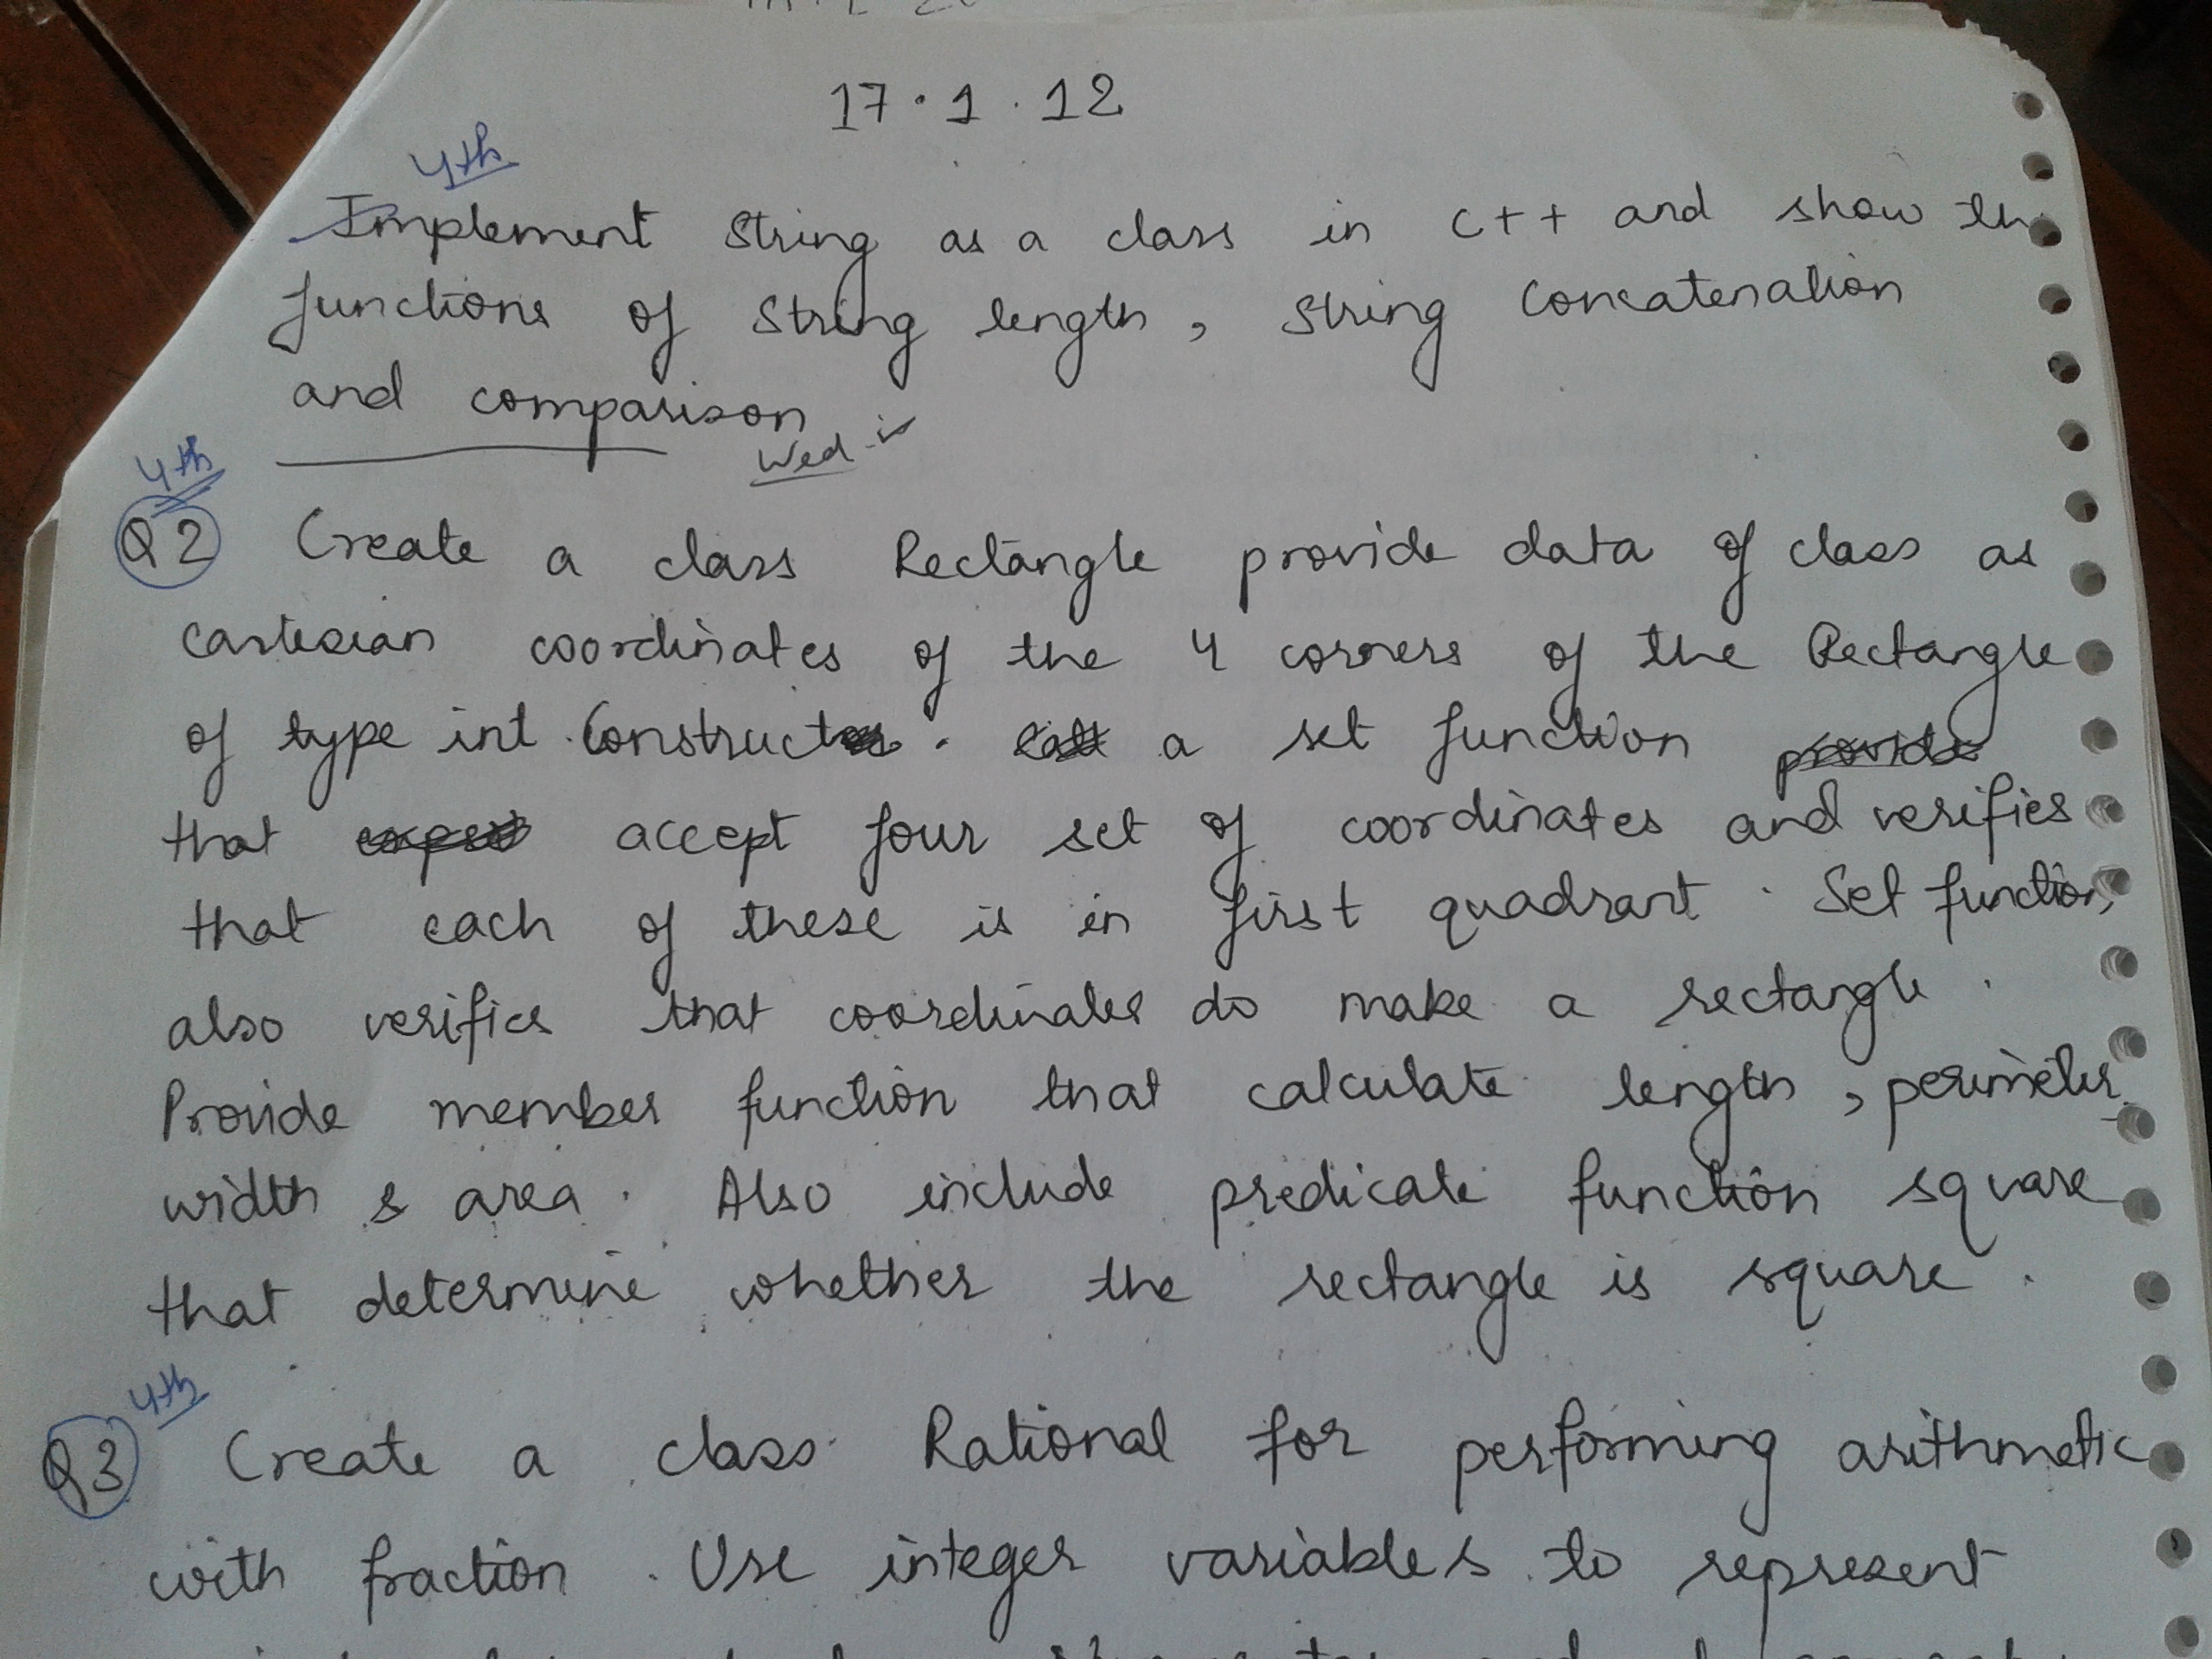 17.1.12
4th
Implement String as a class in C++ and show the
functions of String length, String Concatenation
and comparison
Wed
4th
Q2 Create a class Rectangle provide data of class as
cartesian coordinates of the 4 corners of the Rectangle
of type int. Construct . a set function provide
that accept four set of coordinates and verifies
that each of these is in first quadrant. Set function
also verifies that coordinates do make a rectangle.
Provide member function that calculate length, perimeter
width & area. Also include predicate function square
that determine whether the rectangle is square.
4th
Q3 Create a class Rational for performing arithmetic
with fraction. Use integer variables to represent